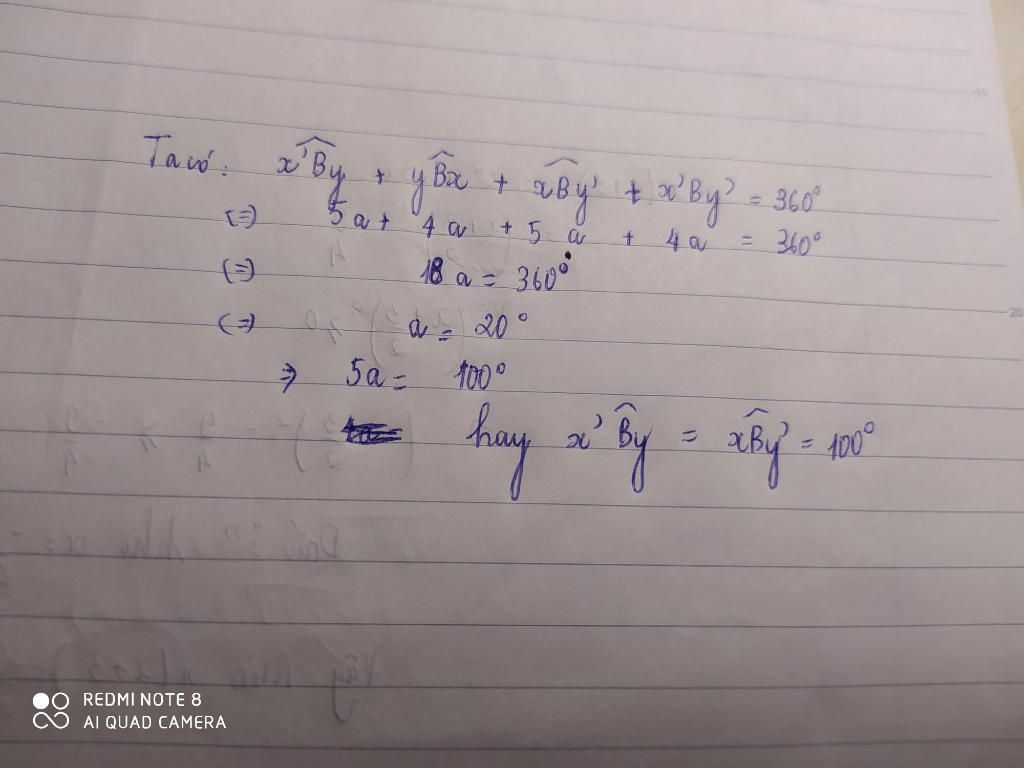 Ta có: x'By + yBx + xBy' + x'By' = 360°
(=) 5a + 4a + 5a + 4a = 360°
(=) 18a = 360°
(=) a = 20°
=> 5a = 100°
hay x'By = xBy' = 100°
REDMI NOTE 8
AI QUAD CAMERA